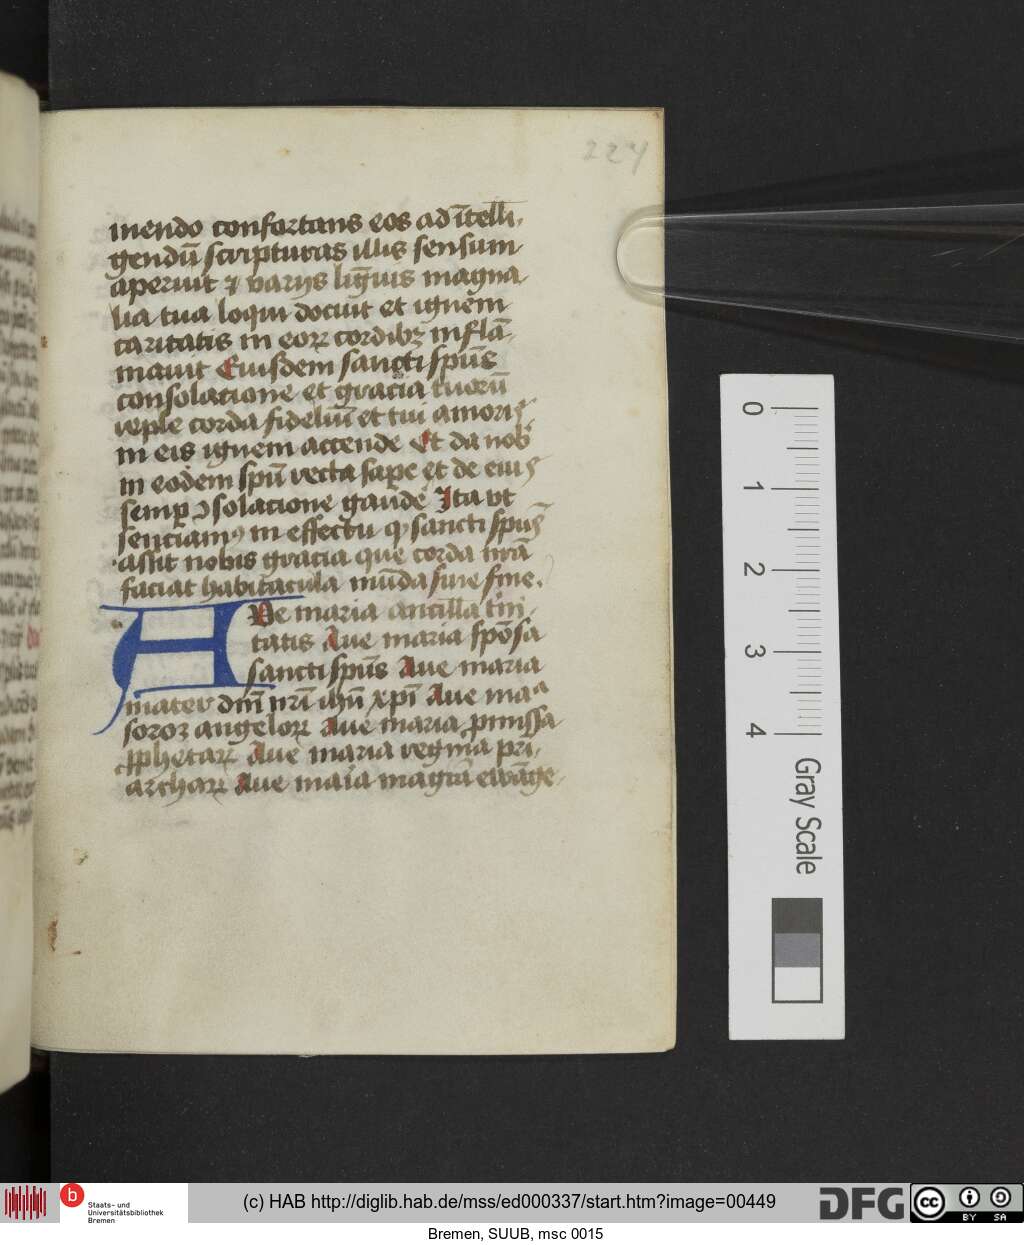 224
mendo confortans eos ad ītelli-
gendū scripturas illis sensum
aperuit ⁊ varijs līguis magna-
lia tua loqui docuit et ignem
caritatis in eorꝝ cordibꝫ inflā-
mauit Eiusdem sancti spūs
consolacione et gracia tuorū
reple corda fideliū et tui amoris
in eis ignem accende Et da nob
in eodem spū recta sape et de eiꝰ
semꝑ ꝯsolacione gaude Ita vt
senciamꝰ in effectu qͥ sancti spūs
assit nobis gracia que corda nrā
faciat habitacula mūda sine fine.
AVe maria ancilla tini-
tatis Aue maria spōsa
sancti spūs Aue maria
mater dnī nrī ihū xpī Aue maᵃ
soroꝛ angeloꝝ Aue maria ꝓmissa
ꝓphetaꝝ Aue maria regina pri-
archaꝝ Aue maia magrā ewāge-
0
1
2
3
4
Gray Scale
b
Staats- und
Universitätsbibliothek
Bremen
(c) HAB http://diglib.hab.de/mss/ed000337/start.htm?image=00449
DFG
cc
BY SA
Bremen, SUUB, msc 0015